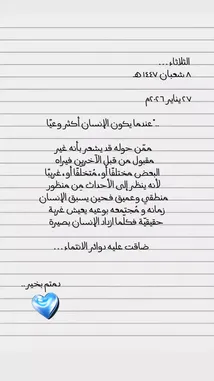 الثلاثاء...
٨ شعبان ١٤٤٧ هـ
٢٧ يناير ٢٠٢٦م
.."عندما يكون الإنسان أكثر وعيًا
ممّن حوله قد يشعر بأنه غير
مقبول من قبل الآخرين فيراه
البعض مختلفًا أو، مُتخلفًا أو، غريبًا
لأنه ينظر إلى الأحداث من منظور
منطقي وعميق فحين يسبق الإنسان
زمانه و مُجتمعه بوعيه يعيش غربة
حقيقيّة فكلّما ازداد الإنسان بصيرة
ضاقت عليه دوائر الانتماء...
دمتم بخير..